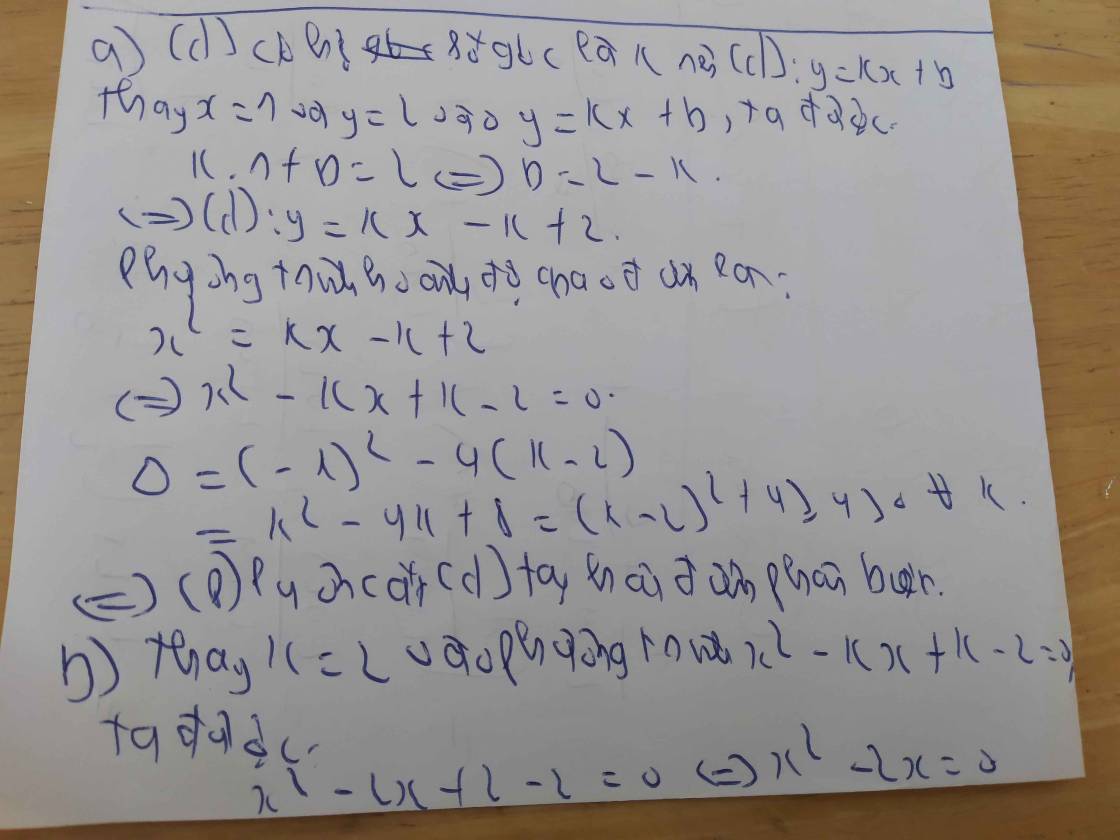 a) (d) có hệ số góc là k nên (d): y = kx + b
thay x = 1 và y = 2 vào y = kx + b, ta được:
k.1 + b = 2 <=> b = 2 - k.
<=> (d): y = kx - k + 2.
Phương trình hoành độ giao điểm là:
x² = kx - k + 2
<=> x² - kx + k - 2 = 0.
Δ = (-k)² - 4(k - 2)
= k² - 4k + 8 = (k - 2)² + 4 ≥ 4 > 0 ∀ k.
<=> (P) luôn cắt (d) tại hai điểm phân biệt.
b) thay k = 2 vào phương trình x² - kx + k - 2 = 0,
ta được:
x² - 2x + 2 - 2 = 0 <=> x² - 2x = 0